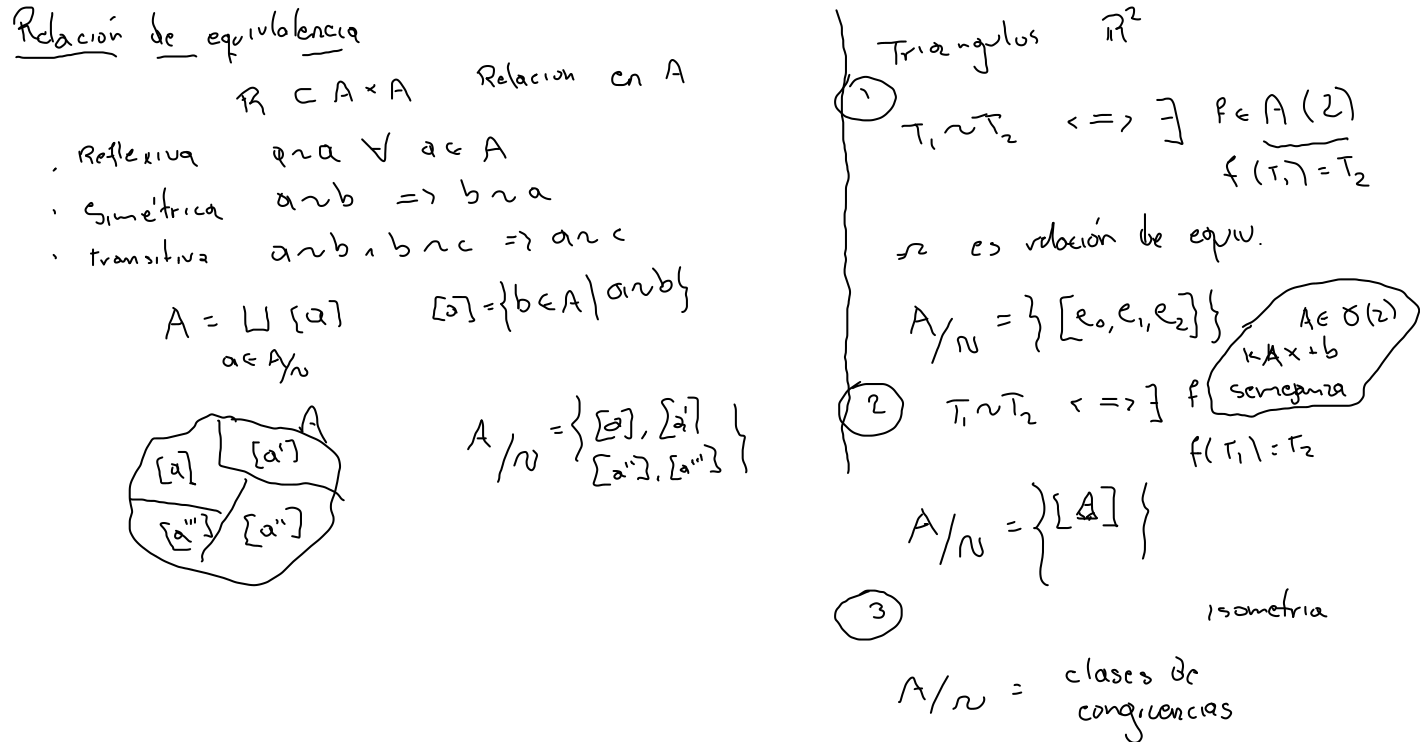 Relación de equivalencia
R ⊂ A × A Relacion en A
. Reflexiva a~a ∀ a∈A
· Simétrica a~b => b~a
· transitiva a~b ∧ b~c => a~c
A = ⊔ [a] [a]={b∈A | a~b}
a∈A/~
A
[a] [a']
[a'''] [a'']
A/~ = { [a], [a']
[a''], [a'''] }
Triangulos R²
1
T₁~T₂ <=> ∃ f∈A(2)
f(T₁)=T₂
~ es relación de equiv.
A/~ = { [e₀,e₁,e₂] }
A∈O(2)
kAx+b
semejanza
2 T₁~T₂ <=> ∃ f
f(T₁)=T₂
A/~ = { [A] }
3 isometria
A/~ = clases de
congruencias